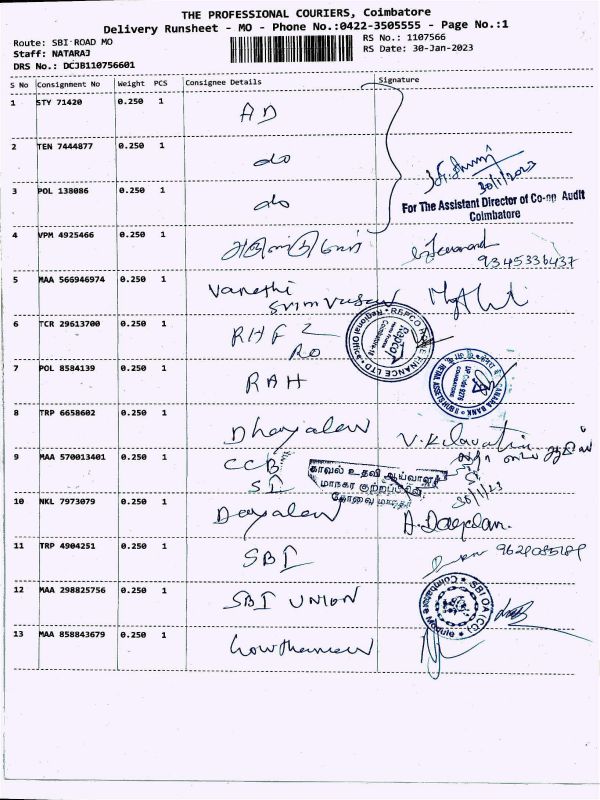 THE PROFESSIONAL COURIERS, Coimbatore
Delivery Runsheet - MO - Phone No.:0422-3505555 - Page No.:1
Route: SBI ROAD MO
RS No.: 1107566
Staff: NATARAJ
RS Date: 30-Jan-2023
DRS No.: DCJB110756601
S No Consignment No Weight PCS Consignee Details Signature
1 STY 71420 0.250 1 AD
2 TEN 7444877 0.250 1 do
30/1/2023
3 POL 138086 0.250 1 do
For The Assistant Director of Co-op Audit
Coimbatore
4 VPM 4925466 0.250 1
9345336437
5 MAA 566946974 0.250 1 Vanathi
Srinivasan
6 TCR 29613700 0.250 1 RHF L
RO
REPCO HOME FINANCE LTD
Regional Office
7 POL 8584139 0.250 1 RAH
CANARA BANK
RETAIL ASSETS HUB II
COIMBATORE
8 TRP 6658602 0.250 1 Dhayalan
9 MAA 570013401 0.250 1 CCB
SI
காவல் உதவி ஆய்வாளர்
மாநகர குற்றப்பிரிவு
கோவை மாநகர்
30/1/23
10 NKL 7973079 0.250 1 Dayalan A. Dayalan.
11 TRP 4904251 0.250 1 SBI
12 MAA 298825756 0.250 1 SBI UNION
SBI OA (CC)
Coimbatore Module
13 MAA 858843679 0.250 1 Gowthaman